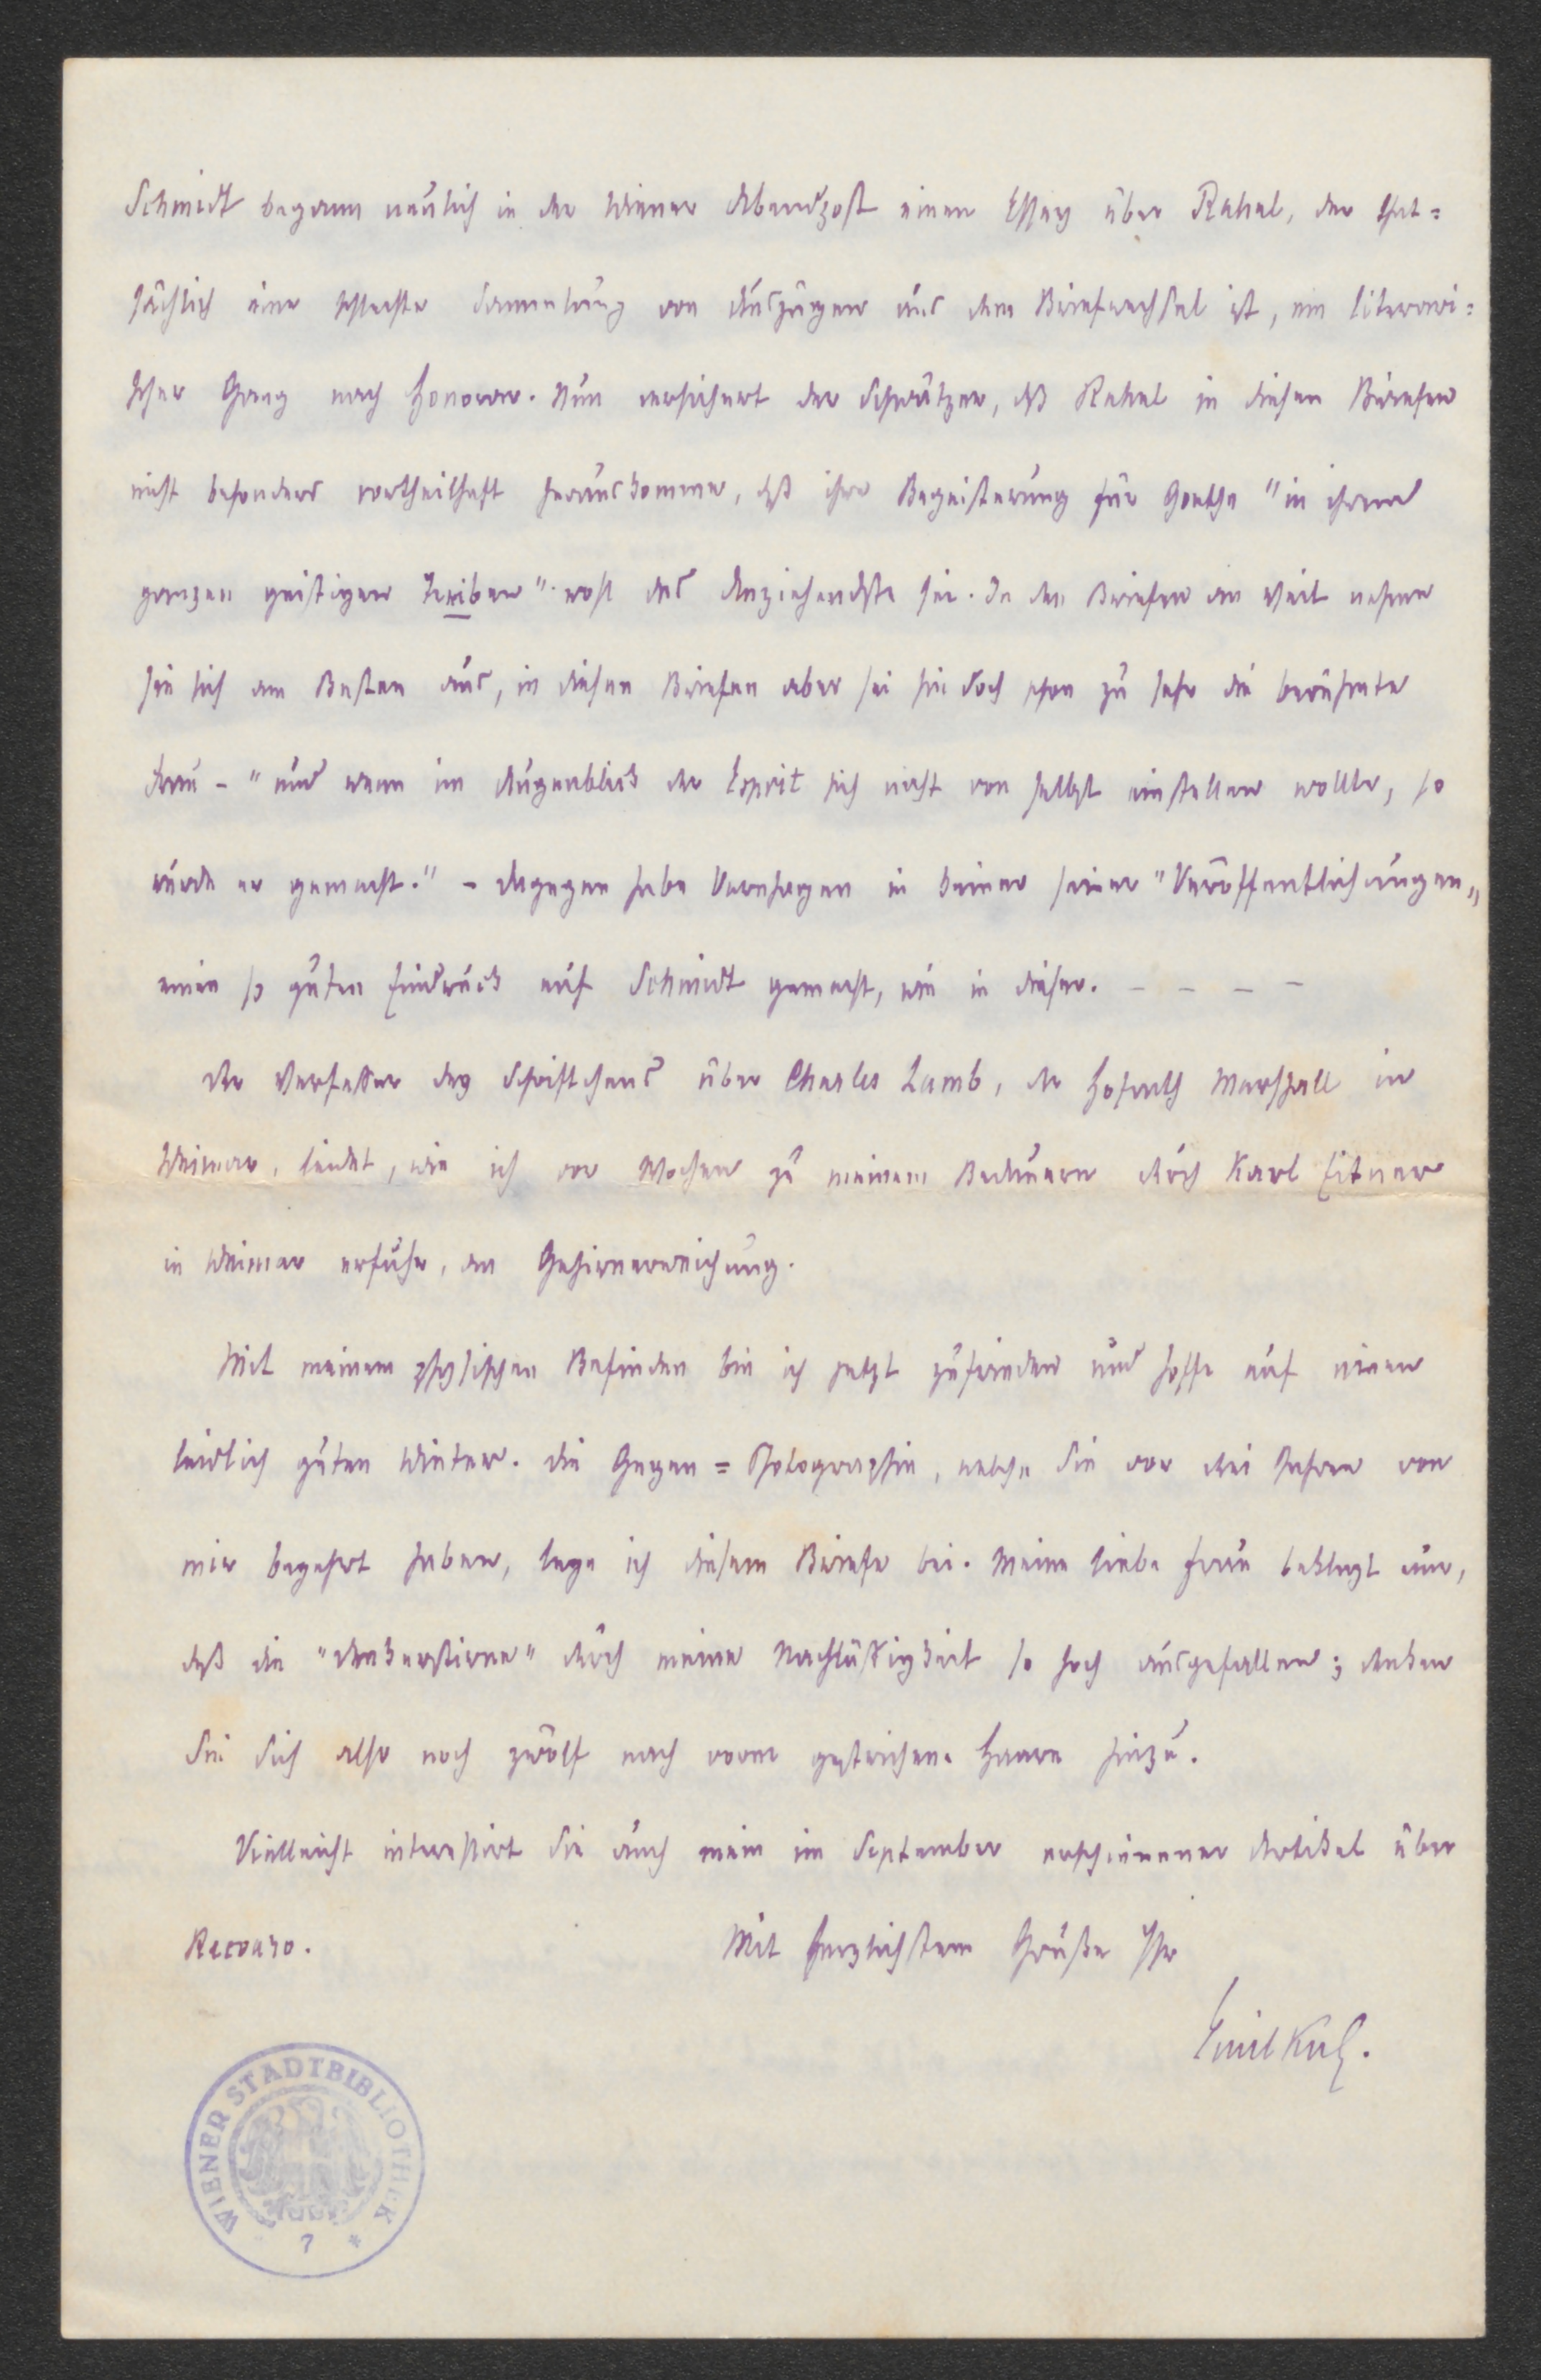 Schmidt begann neulich in der Wiener Abendpost einen Essay über Rahel, der that=
sächlich eine schlechte Sammlung von Auszügen aus dem Briefwechsel ist, ein literari=
scher Gang nach Honorar. Nun versichert der Schwätzer, daß Rahel in diesen Briefen
nicht besonders vortheilhaft herauskomme, daß ihre Begeisterung für Goethe "in ihrem
ganzen geistigen Treiben" wohl das Anziehendste sei. In den Briefen an Veit nehme
sie sich am Besten aus, in diesen Briefen aber sei sie doch schon zu sehr die berühmte
Frau – "und wenn im Augenblick der Esprit sich nicht von selbst einstellen wollte, so
wurde er gemacht." – Dagegen habe Varnhagen in keiner seiner "Veröffentlichungen"
einen so guten Eindruck auf Schmidt gemacht, wie in dieser. – – – –
Der Verfasser des Schriftchens über Charles Lamb, der Hofrath Marshall in
Weimar, leidet, wie ich vor Wochen zu meinem Bedauern durch Karl Eitner
in Weimar erfuhr, an Gehirnerweichung.
Mit meinem physischen Befinden bin ich jetzt zufrieden und hoffe auf einen
leidlich guten Winter. Die Gegen=Photographie, welche Sie vor drei Jahren von
mir begehrt haben, lege ich diesem Briefe bei. Meine liebe Frau beklagt nur,
daß die "Denkerstirne" durch meine Nachlässigkeit so hoch ausgefallen; denken
Sie sich also noch zwölf nach vorne gestrichene Haare hinzu.
Vielleicht interessirt Sie auch mein im September erschienener Artikel über
Recoaro. Mit herzlichstem Gruße Ihr
Emil Kuh.
WIENER STADTBIBLIOTHEK
7 *